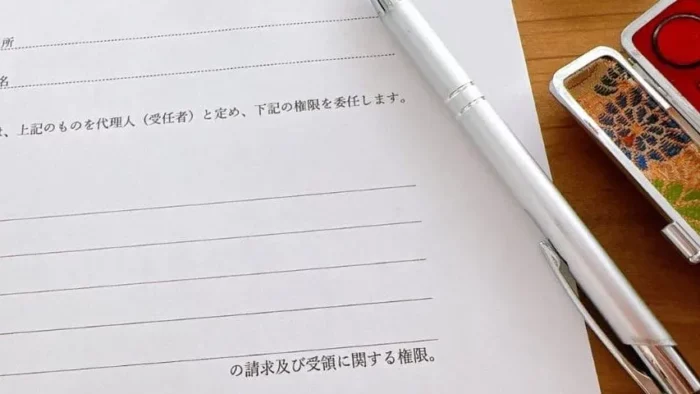 所
名
は、上記のものを代理人（受任者）と定め、下記の権限を委任します。
の請求及び受領に関する権限。